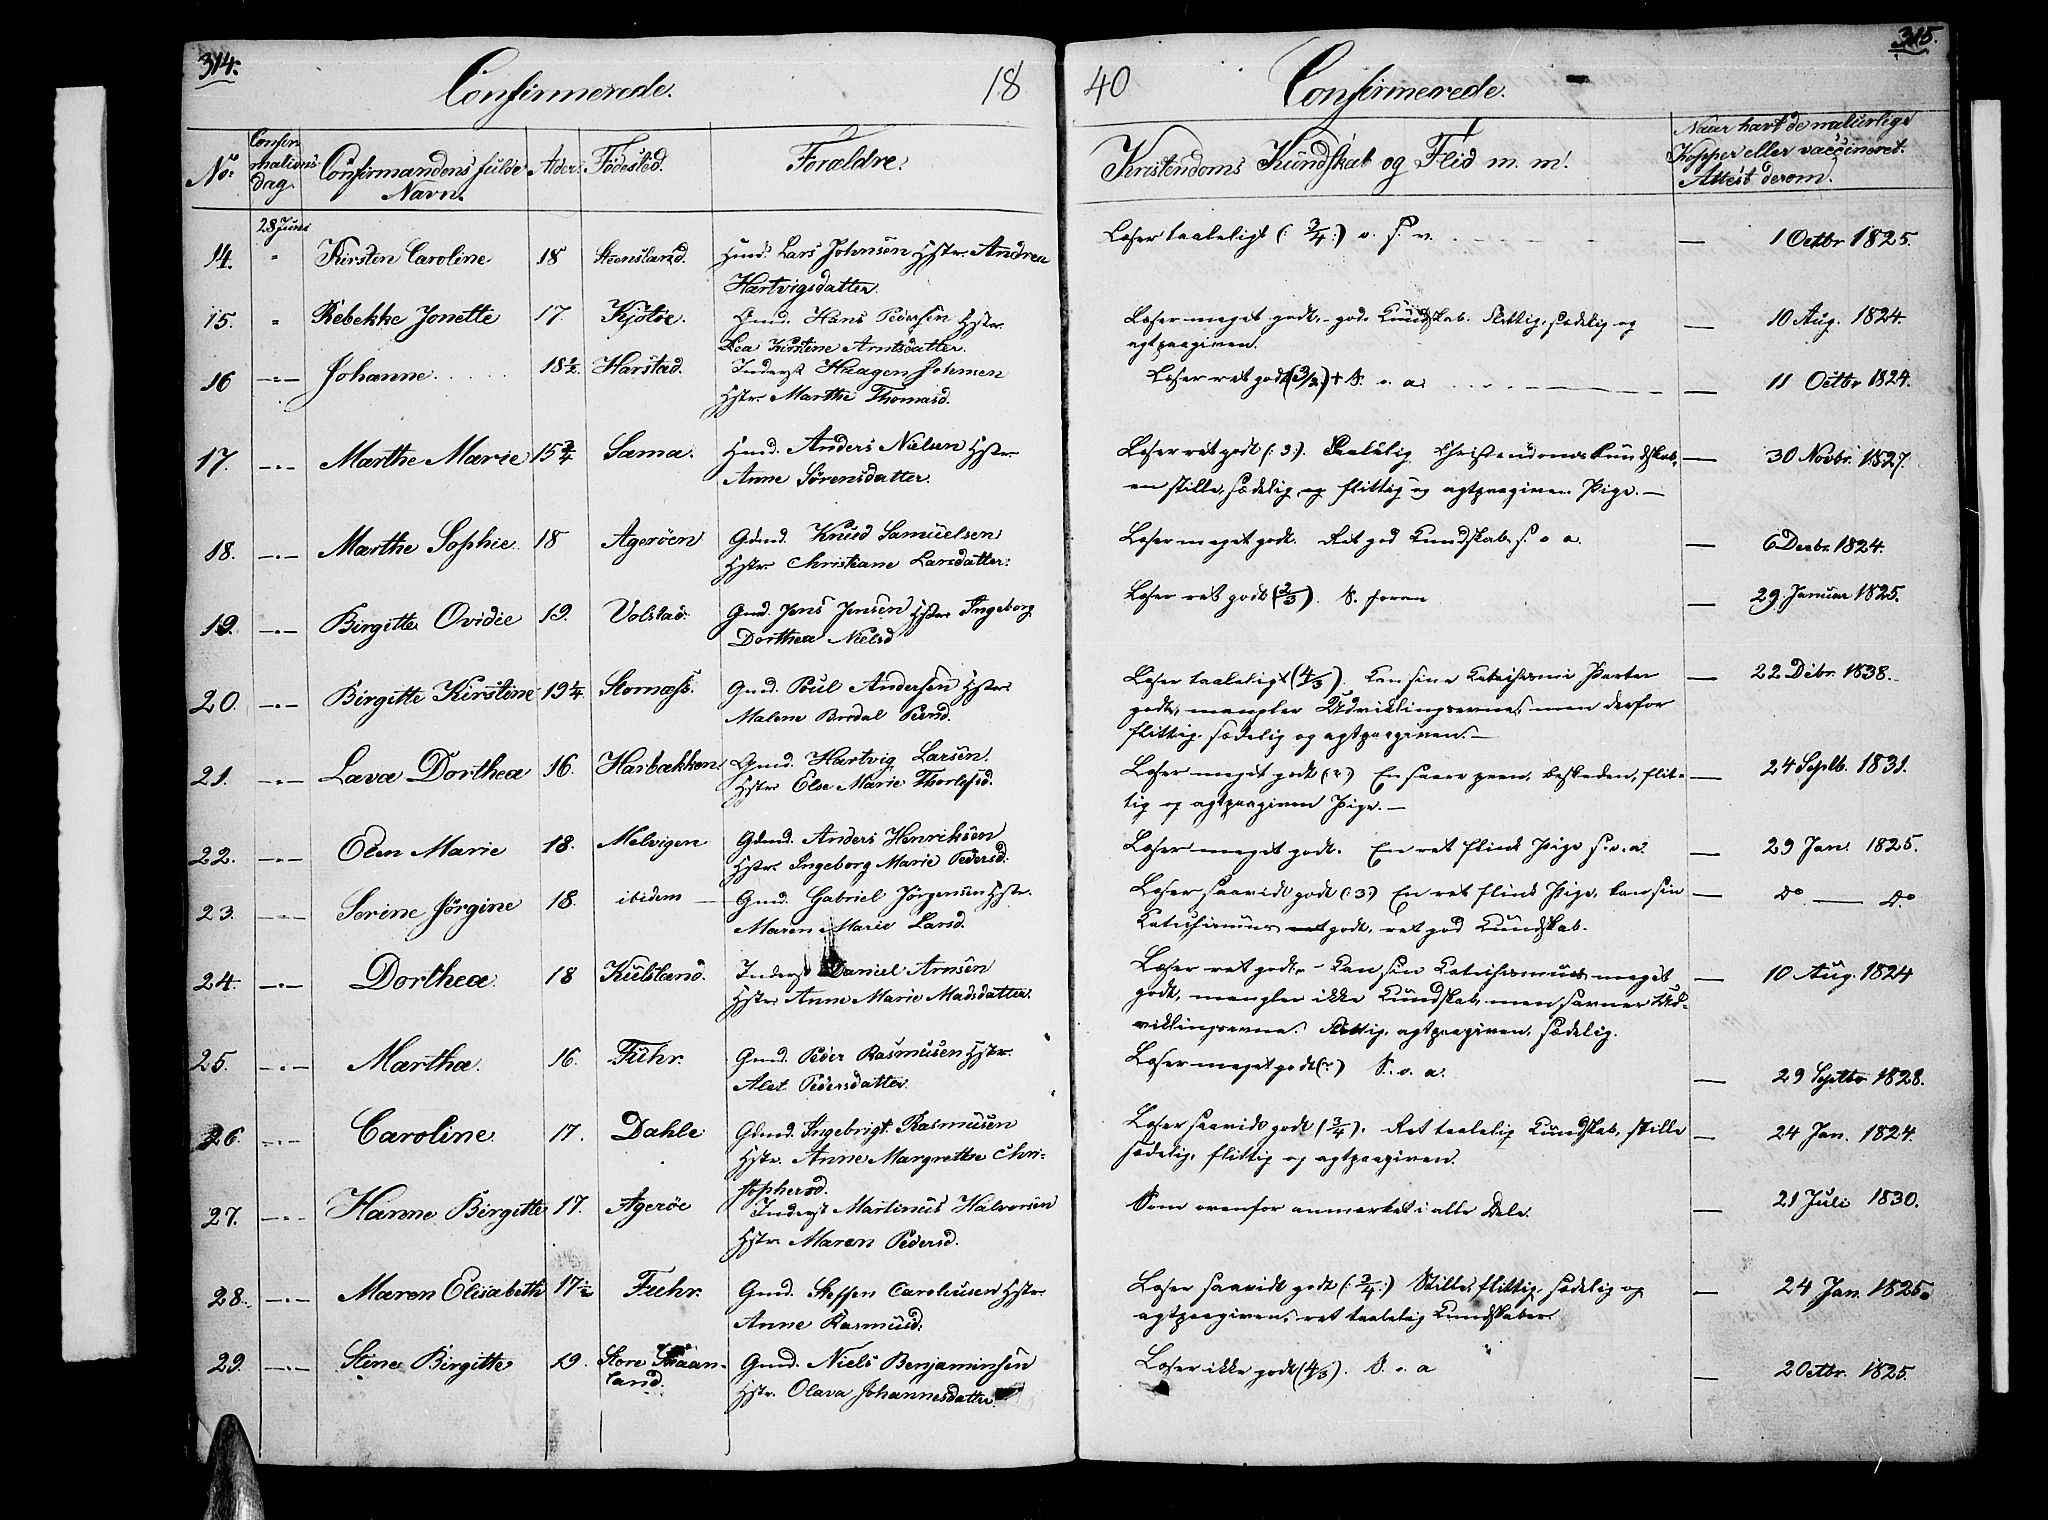 314.
Confirmerede.
18
No.
Confir
mations-
dag.
Confirmandens fulde
Navn.
Alder.
Fødested.
Forældre.
28 Juni
14. " Kirsten Caroline 18 Steensland. Hmd. Lars Johnsen Hstr. Andrea
Hartvigsdatter.
15. " Rebekke Jonette 17. Kjøtøe. Gmd. Hans Pedersen Hstr.
Lea Kirstine Arntsdatter.
16 —"— Johanne 18½ Harstad. Inderst Haagen Johnsen
Hstr. Marthe Thomasd.
17. —"— Marthe Marie 15¾ Sama. Hmd. Anders Nielsen Hstr.
Anne Sørensdatter.
18. —"— Marthe Sophie 18 Agerøen Gdmd. Knud Samuelsen
Hstr. Christiane Larsdatter.
19. —"— Birgitte Ovidie 19. Volstad. Gmd. Jens Jensen Hstr. Ingeborg
Dorthea Nielsd
20. —"— Birgitte Kirstine 19¼ Stornæss. Gmd. Poul Andersen Hstr.
Malene Bredal Pedersd.
21. —"— Lava Dorthea 16. Harbakken. Gmd. Hartvig Larsen.
Hstr. Else Marie Thorlefsd.
22. —"— Elen Marie 18. Melvigen Gdmd. Anders Henriksen
Hstr. Ingeborg Marie Pedersd.
23. —"— Serine Jørgine 18. ibidem — Gmd. Gabriel Jörgensen Hstr.
Maren Marie Larsd.
24. —"— Dorthea 18 Kulsland. Inderst Daniel Arnsen
Hstr. Anne Marie Madsdatter.
25. —"— Martha. 16. Fuhr. Gmd. Peder Rasmusen Hstr.
Alet Pedersdatter.
26. —"— Caroline 17. Dahle Gdmd. Ingebrigt Rasmusen
Hstr. Anne Margrethe Chri-
stophersd.
27. —"— Hanne Birgitte 17. Agerøe Inderst Martinus Halvorsen
Hstr. Maren Pedersd.
28. —"— Maren Elisabeth 17½ Fuhr. Gmd. Steffen Caroliusen Hstr.
Anne Rasmusd.
29. —"— Stine Birgitte 19. Store Skaan-
land. Gmd. Niels Benjaminsen
Hstr. Olava Johannesdatter.
315.
40
Confirmerede.
Kristendoms Kundskab og Flid m. m.
Naar havt de naturlige
Kopper eller vaccineret.
Attest derom.
Læser taaleligt (: ¾ :) s. v. — 1 Octbr 1825.
Læser meget godt, god Kundskab. Flittig, sædelig og — 10 Aug. 1824.
agtpaagiven.
Læser ret godt (3/2) + S. o. a. — 11 Octbr 1824.
Læser ret godt (: 3 :). Taalelig Christendomskundskab, — 30 Novbr. 1827.
en stille, sædelig og flittig og agtpaagiven Pige. —
Læser meget godt. Ret god Kundskab. s. o a. — 6 Decbr. 1824.
Læser ret godt (2/3). S. foran — 29. Januar 1825.
Læser taaleligt (4/3). Kan sine Katechismi Parter — 22 Dcbr. 1838.
godt, mangler Udviklingsevne, men derfor
flittig, sædelig og agtpaagiven. —
Læser meget godt (: 2 :) En saare pæn, beskeden, flit- — 24 Septb. 1831.
tig og agtpaagiven Pige. —
Læser meget godt. En ret flink Pige s. o. a. — 29 Jan. 1825.
Læser saavidt godt (: 3 :) En ret flink Pige, kan sin — do — do
Katechismus godt, ret god Kundskab.
Læser ret godt. — Kan sin Katechismus meget — 10 Aug. 1824
godt, mangler ikke Kundskab, men savner Ud-
viklingsevne. Flittig, agtpaagiven, sædelig.
Læser meget godt S. o. a. — 29 Septbr 1828.
Læser saavidt godt (¾). Ret taalelig Kundskab, stille — 24 Jan. 1824.
sædelig, flittig og agtpaagiven.
Som ovenfor anmærket i alle Dele. — 21 Juli 1830.
Læser saavidt godt (: ¾ :) Stille, flittig, sædelig og — 24 Jan. 1825.
agtpaagiven, ret taalelig Kundskaber.
Læser ikke godt (4/5). S. o. a — 2 Octbr. 1825.